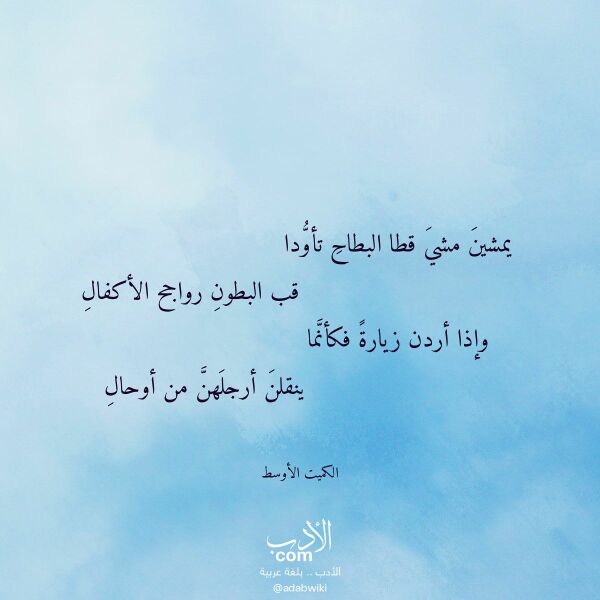 يمشينَ مشيَ قطا البطاحِ تأوُّدا
قب البطونِ رواجح الأكفالِ
وإذا أردن زيارةً فكأنَّما
ينقلنَ أرجلَهنَّ من أوحالِ
الكميت الأوسط
الأدب
com
الأدب .. بلغة عربية
@adabwiki